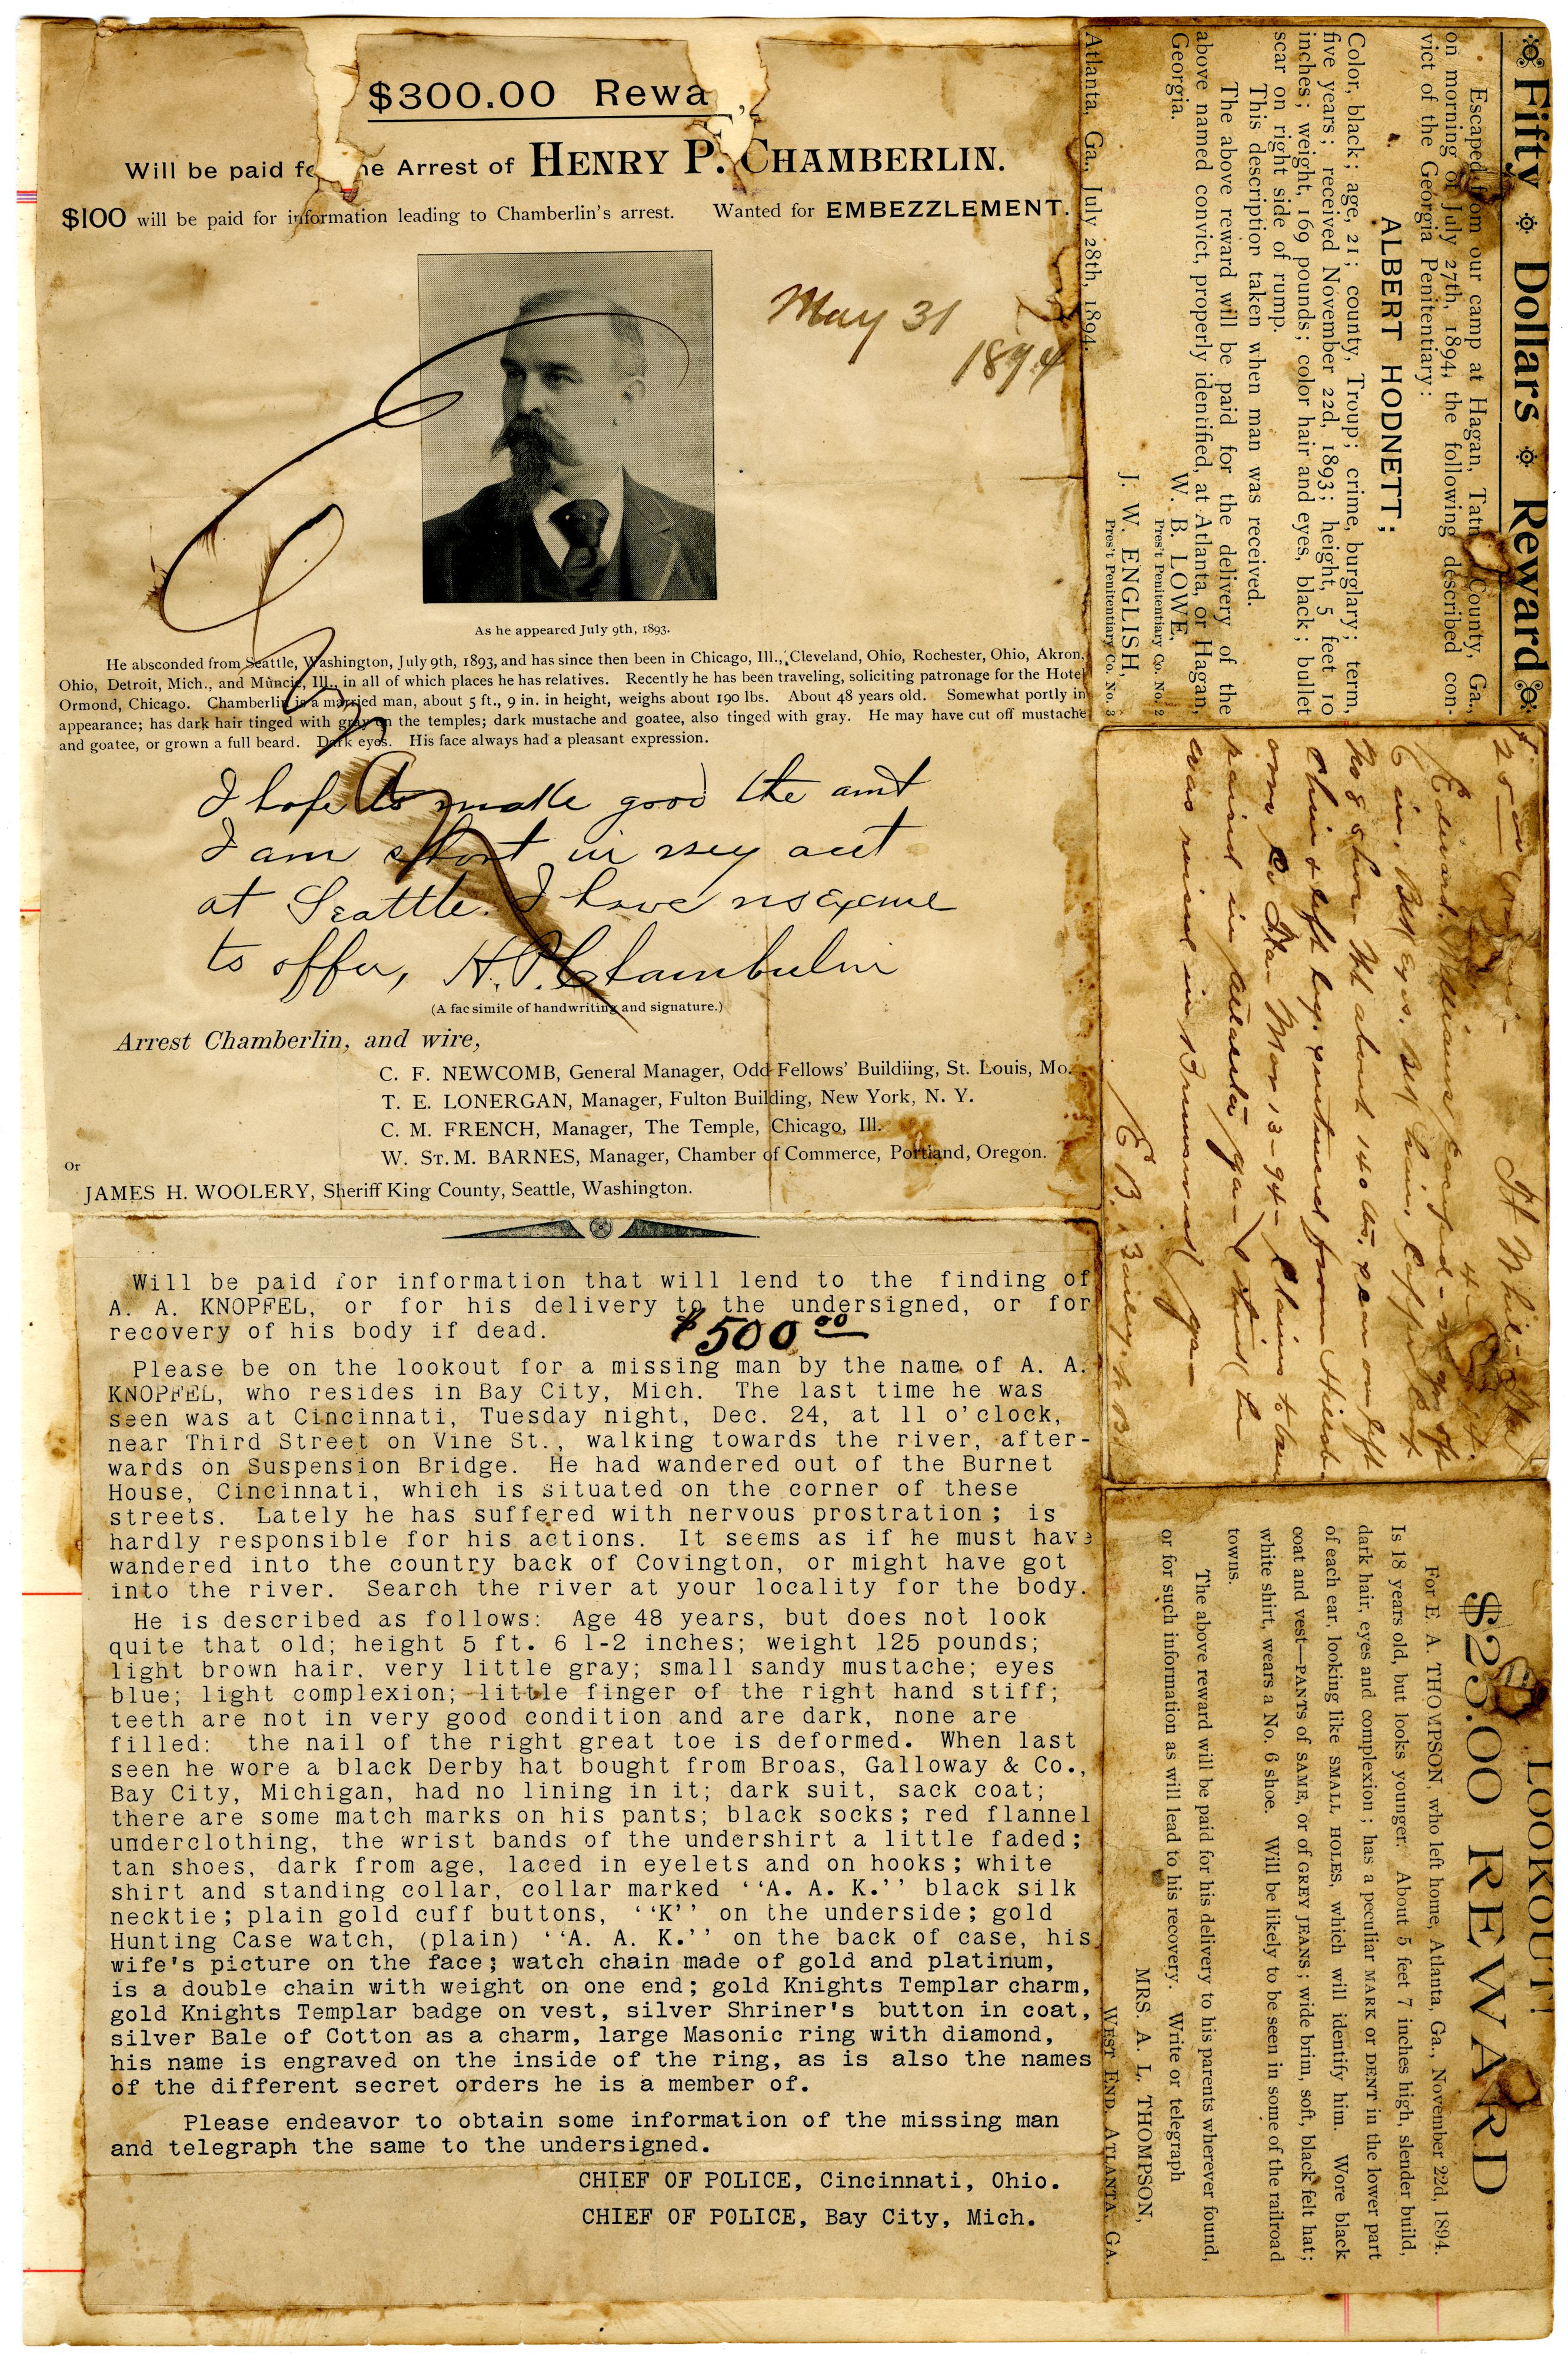 $300.00 Rewa
Will be paid fo he Arrest of HENRY P. CHAMBERLIN.
$100 will be paid for information leading to Chamberlin's arrest. Wanted for EMBEZZLEMENT.
May 31
1894
As he appeared July 9th, 1893.
He absconded from Seattle, Washington, July 9th, 1893, and has since then been in Chicago, Ill., Cleveland, Ohio, Rochester, Ohio, Akron,
Ohio, Detroit, Mich., and Muncie, Ill., in all of which places he has relatives. Recently he has been traveling, soliciting patronage for the Hotel
Ormond, Chicago. Chamberlin is a married man, about 5 ft., 9 in. in height, weighs about 190 lbs. About 48 years old. Somewhat portly in
appearance; has dark hair tinged with gray on the temples; dark mustache and goatee, also tinged with gray. He may have cut off mustache
and goatee, or grown a full beard. Dark eyes. His face always had a pleasant expression.
I hope to make good the amt
I am short in my act
at Seattle. I have no excuse
to offer, H. P. Chamberlin
(A fac simile of handwriting and signature.)
Arrest Chamberlin, and wire,
C. F. NEWCOMB, General Manager, Odd Fellows' Buildiing, St. Louis, Mo.
T. E. LONERGAN, Manager, Fulton Building, New York, N. Y.
C. M. FRENCH, Manager, The Temple, Chicago, Ill.
W. ST. M. BARNES, Manager, Chamber of Commerce, Portland, Oregon.
Or
JAMES H. WOOLERY, Sheriff King County, Seattle, Washington.
Will be paid for information that will lend to the finding of
A. A. KNOPFEL, or for his delivery to the undersigned, or for
recovery of his body if dead.
$500 00
Please be on the lookout for a missing man by the name of A. A.
KNOPFEL, who resides in Bay City, Mich. The last time he was
seen was at Cincinnati, Tuesday night, Dec. 24, at 11 o'clock,
near Third Street on Vine St., walking towards the river, after-
wards on Suspension Bridge. He had wandered out of the Burnet
House, Cincinnati, which is situated on the corner of these
streets. Lately he has suffered with nervous prostration; is
hardly responsible for his actions. It seems as if he must have
wandered into the country back of Covington, or might have got
into the river. Search the river at your locality for the body.
He is described as follows: Age 48 years, but does not look
quite that old; height 5 ft. 6 1-2 inches; weight 125 pounds;
light brown hair, very little gray; small sandy mustache; eyes
blue; light complexion; little finger of the right hand stiff;
teeth are not in very good condition and are dark, none are
filled: the nail of the right great toe is deformed. When last
seen he wore a black Derby hat bought from Broas, Galloway & Co.,
Bay City, Michigan, had no lining in it; dark suit, sack coat;
there are some match marks on his pants; black socks; red flannel
underclothing, the wrist bands of the undershirt a little faded;
tan shoes, dark from age, laced in eyelets and on hooks; white
shirt and standing collar, collar marked ''A. A. K.'' black silk
necktie; plain gold cuff buttons, ''K'' on the underside; gold
Hunting Case watch, (plain) ''A. A. K.'' on the back of case, his
wife's picture on the face; watch chain made of gold and platinum,
is a double chain with weight on one end; gold Knights Templar charm,
gold Knights Templar badge on vest, silver Shriner's button in coat,
silver Bale of Cotton as a charm, large Masonic ring with diamond,
his name is engraved on the inside of the ring, as is also the names
of the different secret orders he is a member of.
Please endeavor to obtain some information of the missing man
and telegraph the same to the undersigned.
CHIEF OF POLICE, Cincinnati, Ohio.
CHIEF OF POLICE, Bay City, Mich.
Fifty Dollars Reward
Escaped from our camp at Hagan, Tatn County, Ga.,
on morning of July 27th, 1894, the following described con-
vict of the Georgia Penitentiary:
ALBERT HODNETT;
Color, black; age, 21; county, Troup; crime, burglary; term,
five years; received November 22d, 1893; height, 5 feet 10
inches; weight, 169 pounds; color hair and eyes, black; bullet
scar on right side of rump.
This description taken when man was received.
The above reward will be paid for the delivery of the
above named convict, properly identified, at Atlanta, or Hagan,
Georgia.
W. B. LOWE,
Pres't Penitentiary Co. No. 2
J. W. ENGLISH,
Pres't Penitentiary Co. No. 3
Atlanta, Ga., July 28th, 1894.
25 00
Edward Williams Escaped
6 in. Blk Eyes. Blk hair,
No 8 shoe. Wt about 140 lbs. scar on left
chin & left leg. captured from
Mar 13-94 - Claims to been
raised in Atlanta Ga - I think he
was raised in Brunswick Ga -
E B Bailey
LOOKOUT!
$25.00 REWARD
For E. A. THOMPSON, who left home, Atlanta, Ga., November 22d, 1894.
Is 18 years old, but looks younger. About 5 feet 7 inches high, slender build,
dark hair, eyes and complexion; has a peculiar MARK or DENT in the lower part
of each ear, looking like SMALL HOLES, which will identify him. Wore black
coat and vest—PANTS of SAME, or of GREY JEANS; wide brim, soft, black felt hat;
white shirt, wears a No. 6 shoe. Will be likely to be seen in some of the railroad
towns.
The above reward will be paid for his delivery to his parents wherever found,
or for such information as will lead to his recovery. Write or telegraph
MRS. A. L. THOMPSON,
WEST END, ATLANTA, GA.